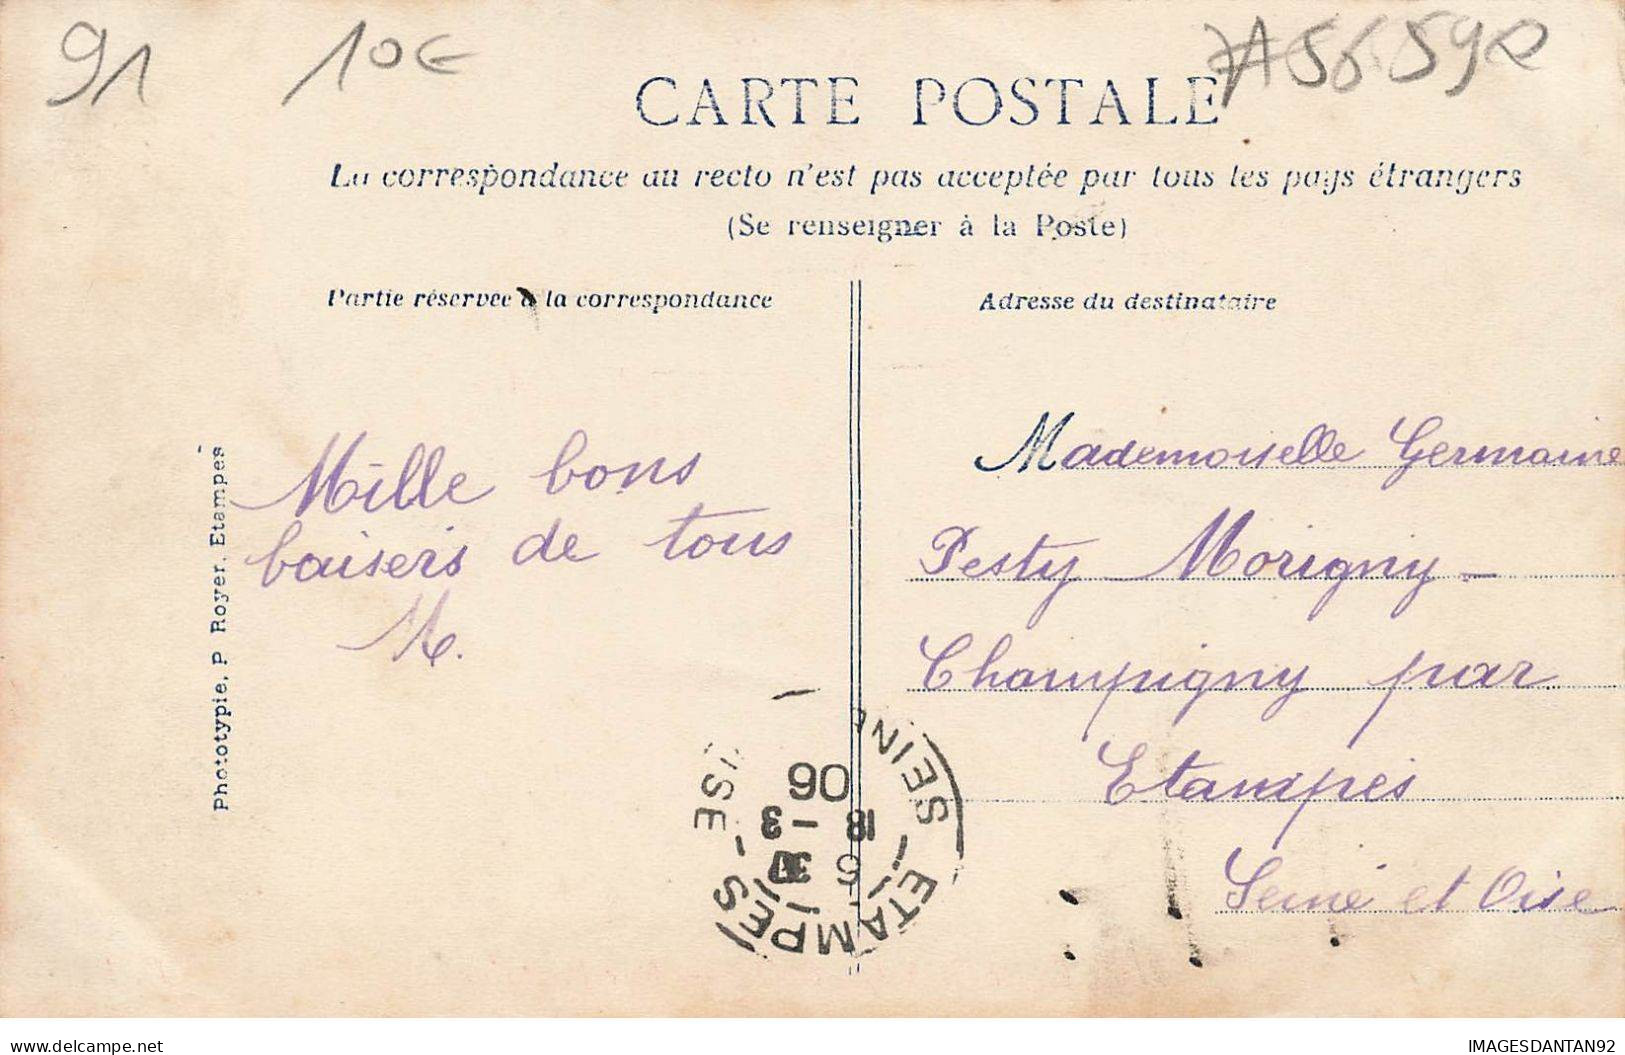 91
10€
A56592
CARTE POSTALE
La correspondance au recto n'est pas acceptée par tous les pays étrangers
(Se renseigner à la Poste)
Partie réservée à la correspondance
Adresse du destinataire
Mille bons
baisers de tous
M.
Mademoiselle Germaine
Pesty Morigny-
Champigny par
Etampes
Seine et Oise
Phototypie, P Royer, Etampes
ETAMPES - SEINE
18 - 3
06
delcampe.net
IMAGESDANTAN92